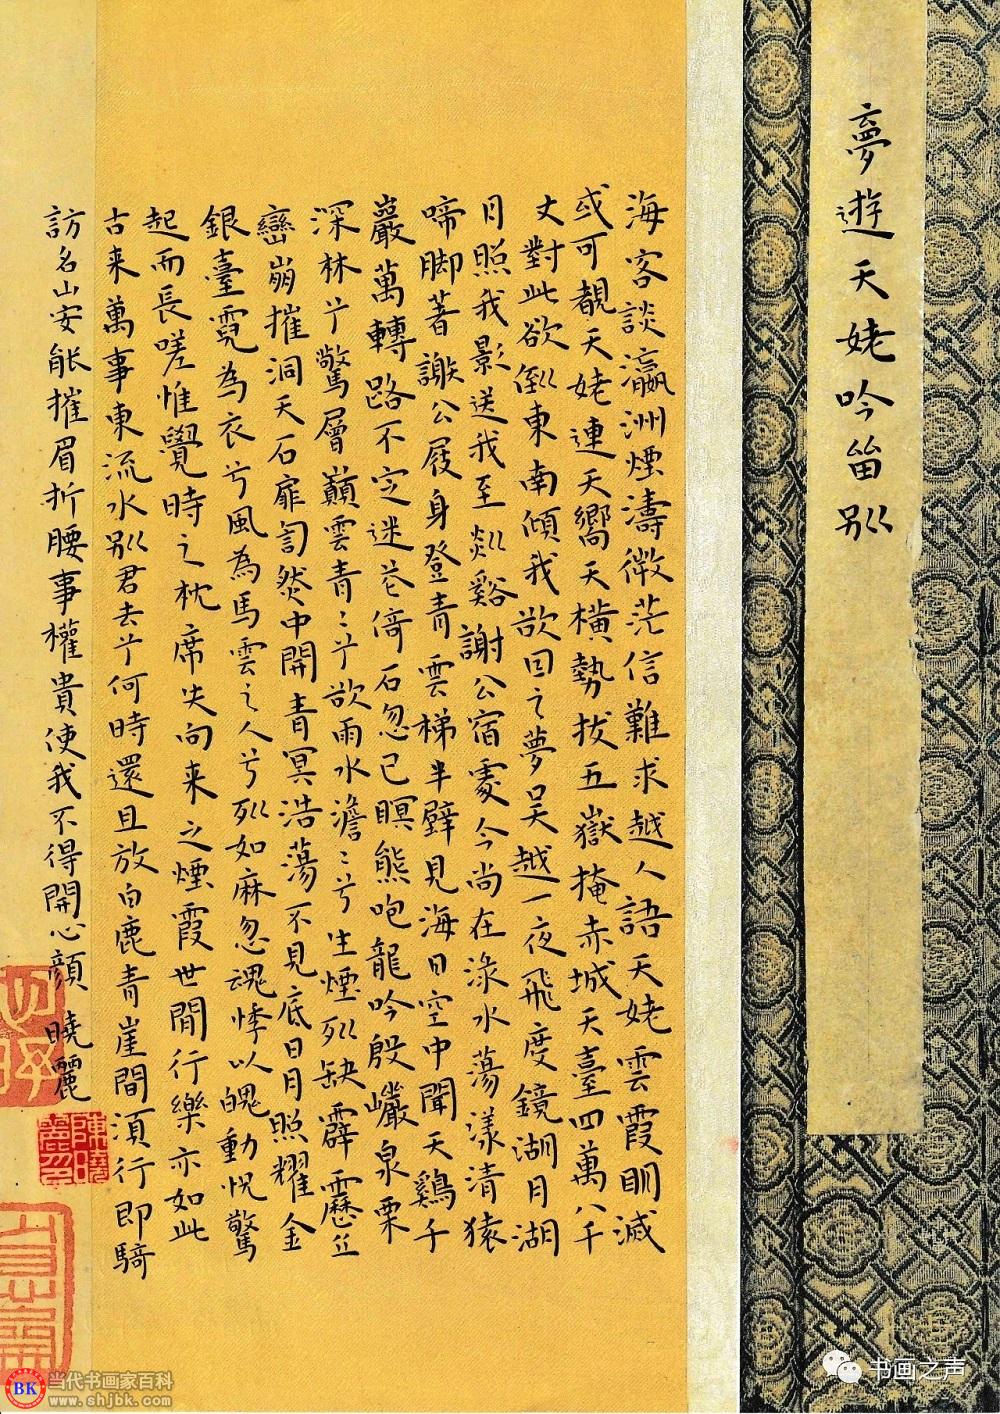 夢遊天姥吟畱别
海客談瀛洲煙濤微茫信難求越人語天姥雲霞明滅
或可覩天姥連天嚮天橫勢拔五嶽掩赤城天臺四萬八千
丈對此欲倒東南傾我欲因之夢吴越一夜飛度鏡湖月湖
月照我影送我至剡谿謝公宿處今尚在淥水蕩漾清猿
啼脚著謝公屐身登青雲梯半壁見海日空中聞天鷄千
巖萬轉路不定迷花倚石忽已暝熊咆龍吟殷巖泉栗
深林兮驚層巔雲青〻兮欲雨水澹〻兮生煙列缺霹靂丘
巒崩摧洞天石扉訇然中開青冥浩蕩不見底日月照耀金
銀臺霓為衣兮風為馬雲之人兮列如麻忽魂悸以魄動怳驚
起而長嗟惟覺時之枕席失向来之煙霞世間行樂亦如此
古来萬事東流水别君去兮何時還且放白鹿青崖間須行即騎
訪名山安能摧眉折腰事權貴使我不得開心顔 曉麗
陳曉麗印
BK
当代书画家百科
www.shjbk.com
书画之声